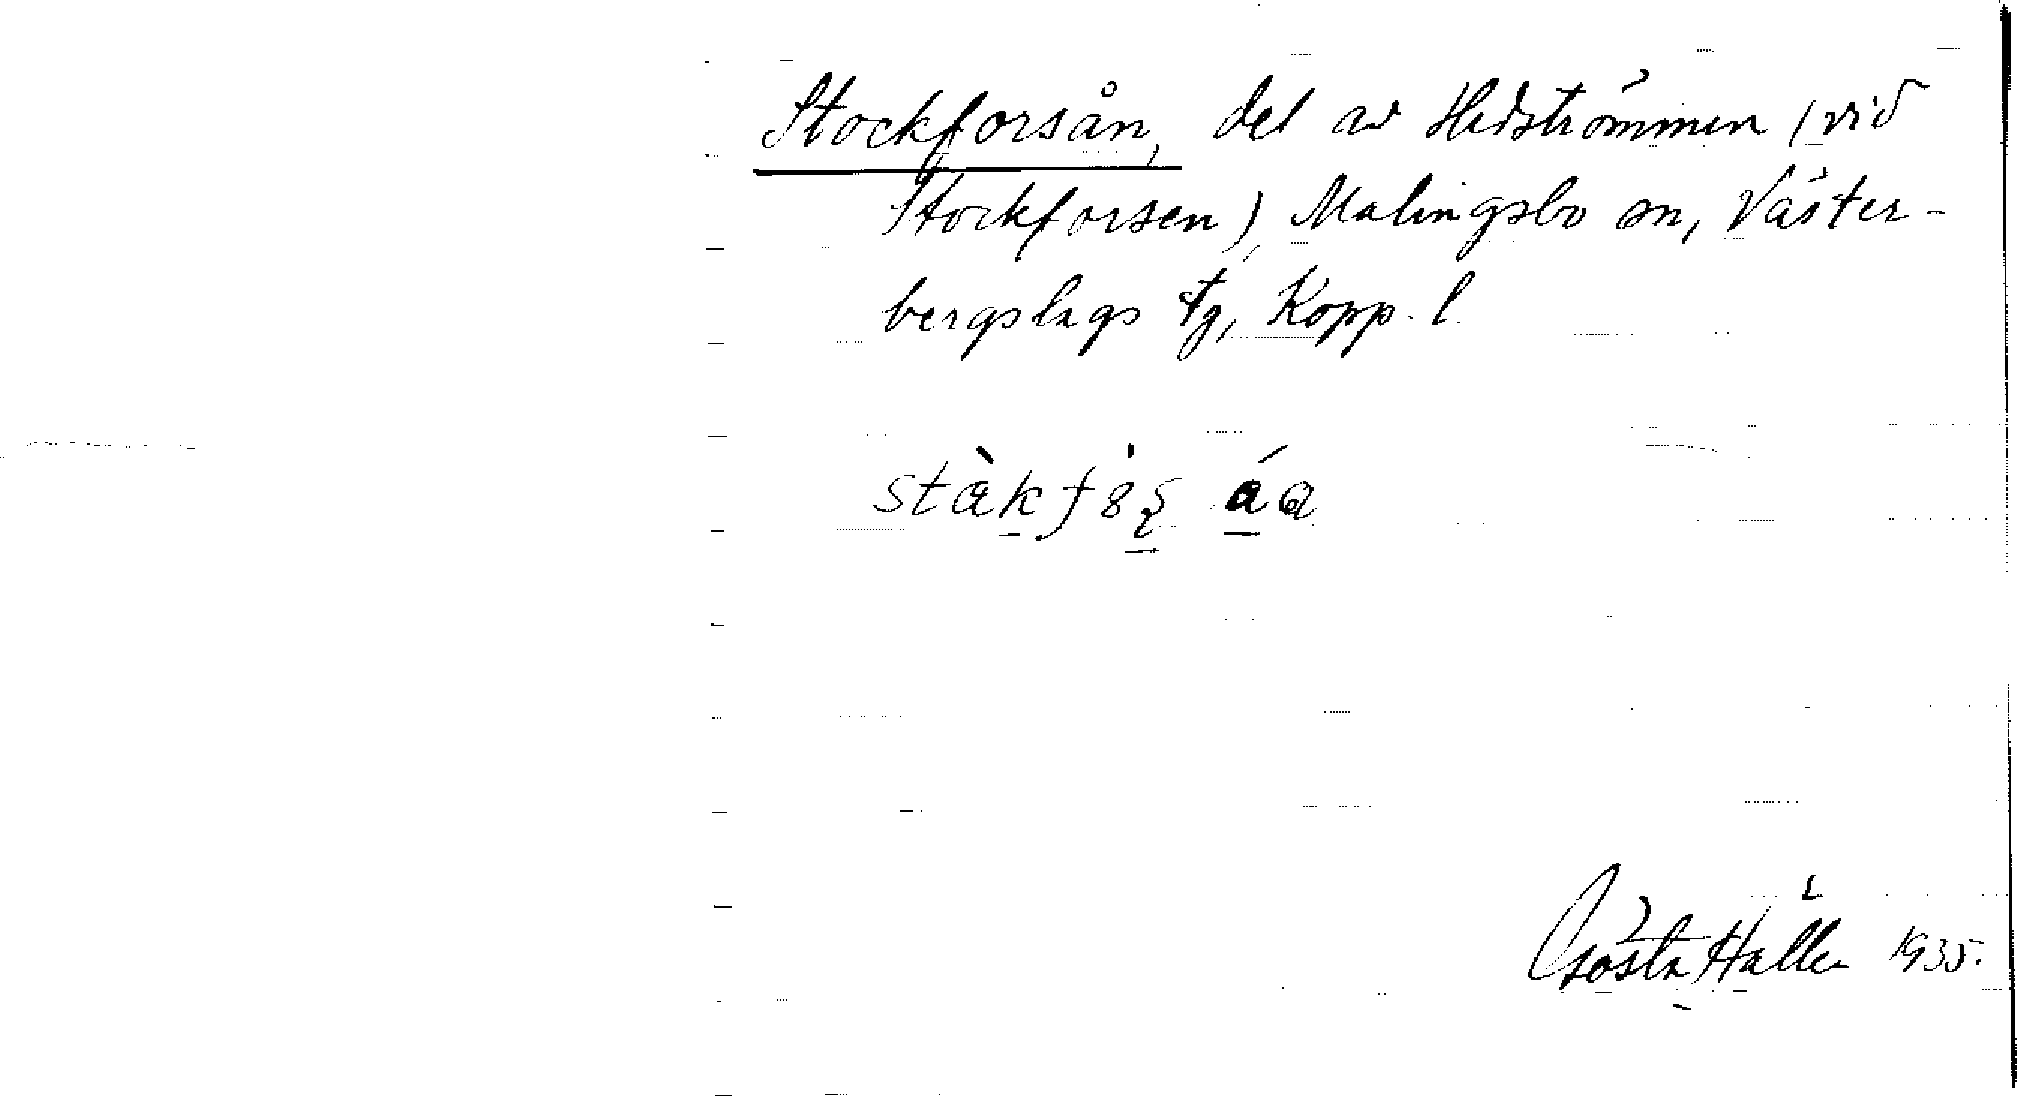 Stockforsån, del av Hedströmmen (vid
Stockforsen), Malingsbo sn, Väster-
bergslags tg, Kopp. l.
Gösta Hallén 1935.